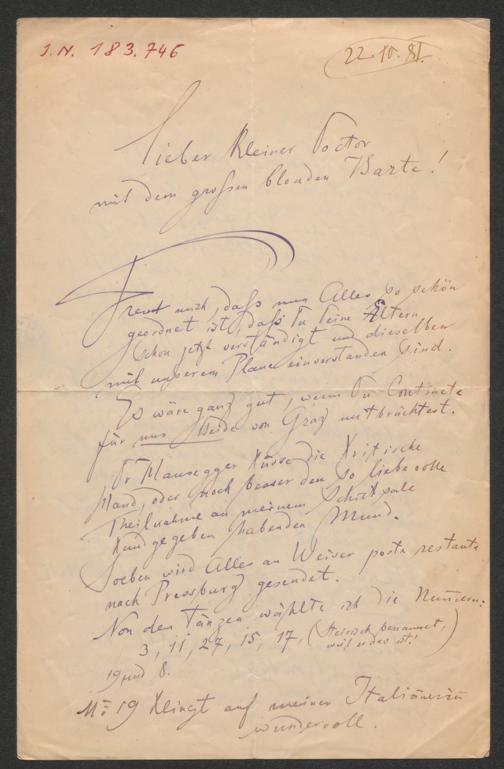 I.N. 183.746
22.10.81.
Lieber kleiner Doctor
mit dem großen blonden Barte!
Freut mich, daß nun Alles so schön
geordnet ist, daß Du Deine Ältern
schon jetzt verständigt und dieselben
mit unserem Plane einverstanden sind.
Es wäre ganz gut, wenn Du Contracte
für uns Beide von Graz mitbrächtest.
Dr Mausegger küsse die kritische
Hand, oder noch besser den so liebevolle
Theilnahme an meinem Schicksale
kundgegeben habenden Mund.
Soeben wird Alles an Weiser poste restante
nach Pressburg gesendet.
Von den Tänzen wählte ich die Num̅ern.
3, 11, 27, 15, 17, (Steirisch benannt,
weil es das ist!)
19 und 8.
No 19 klingt auf meiner Italienerin
wundervoll.